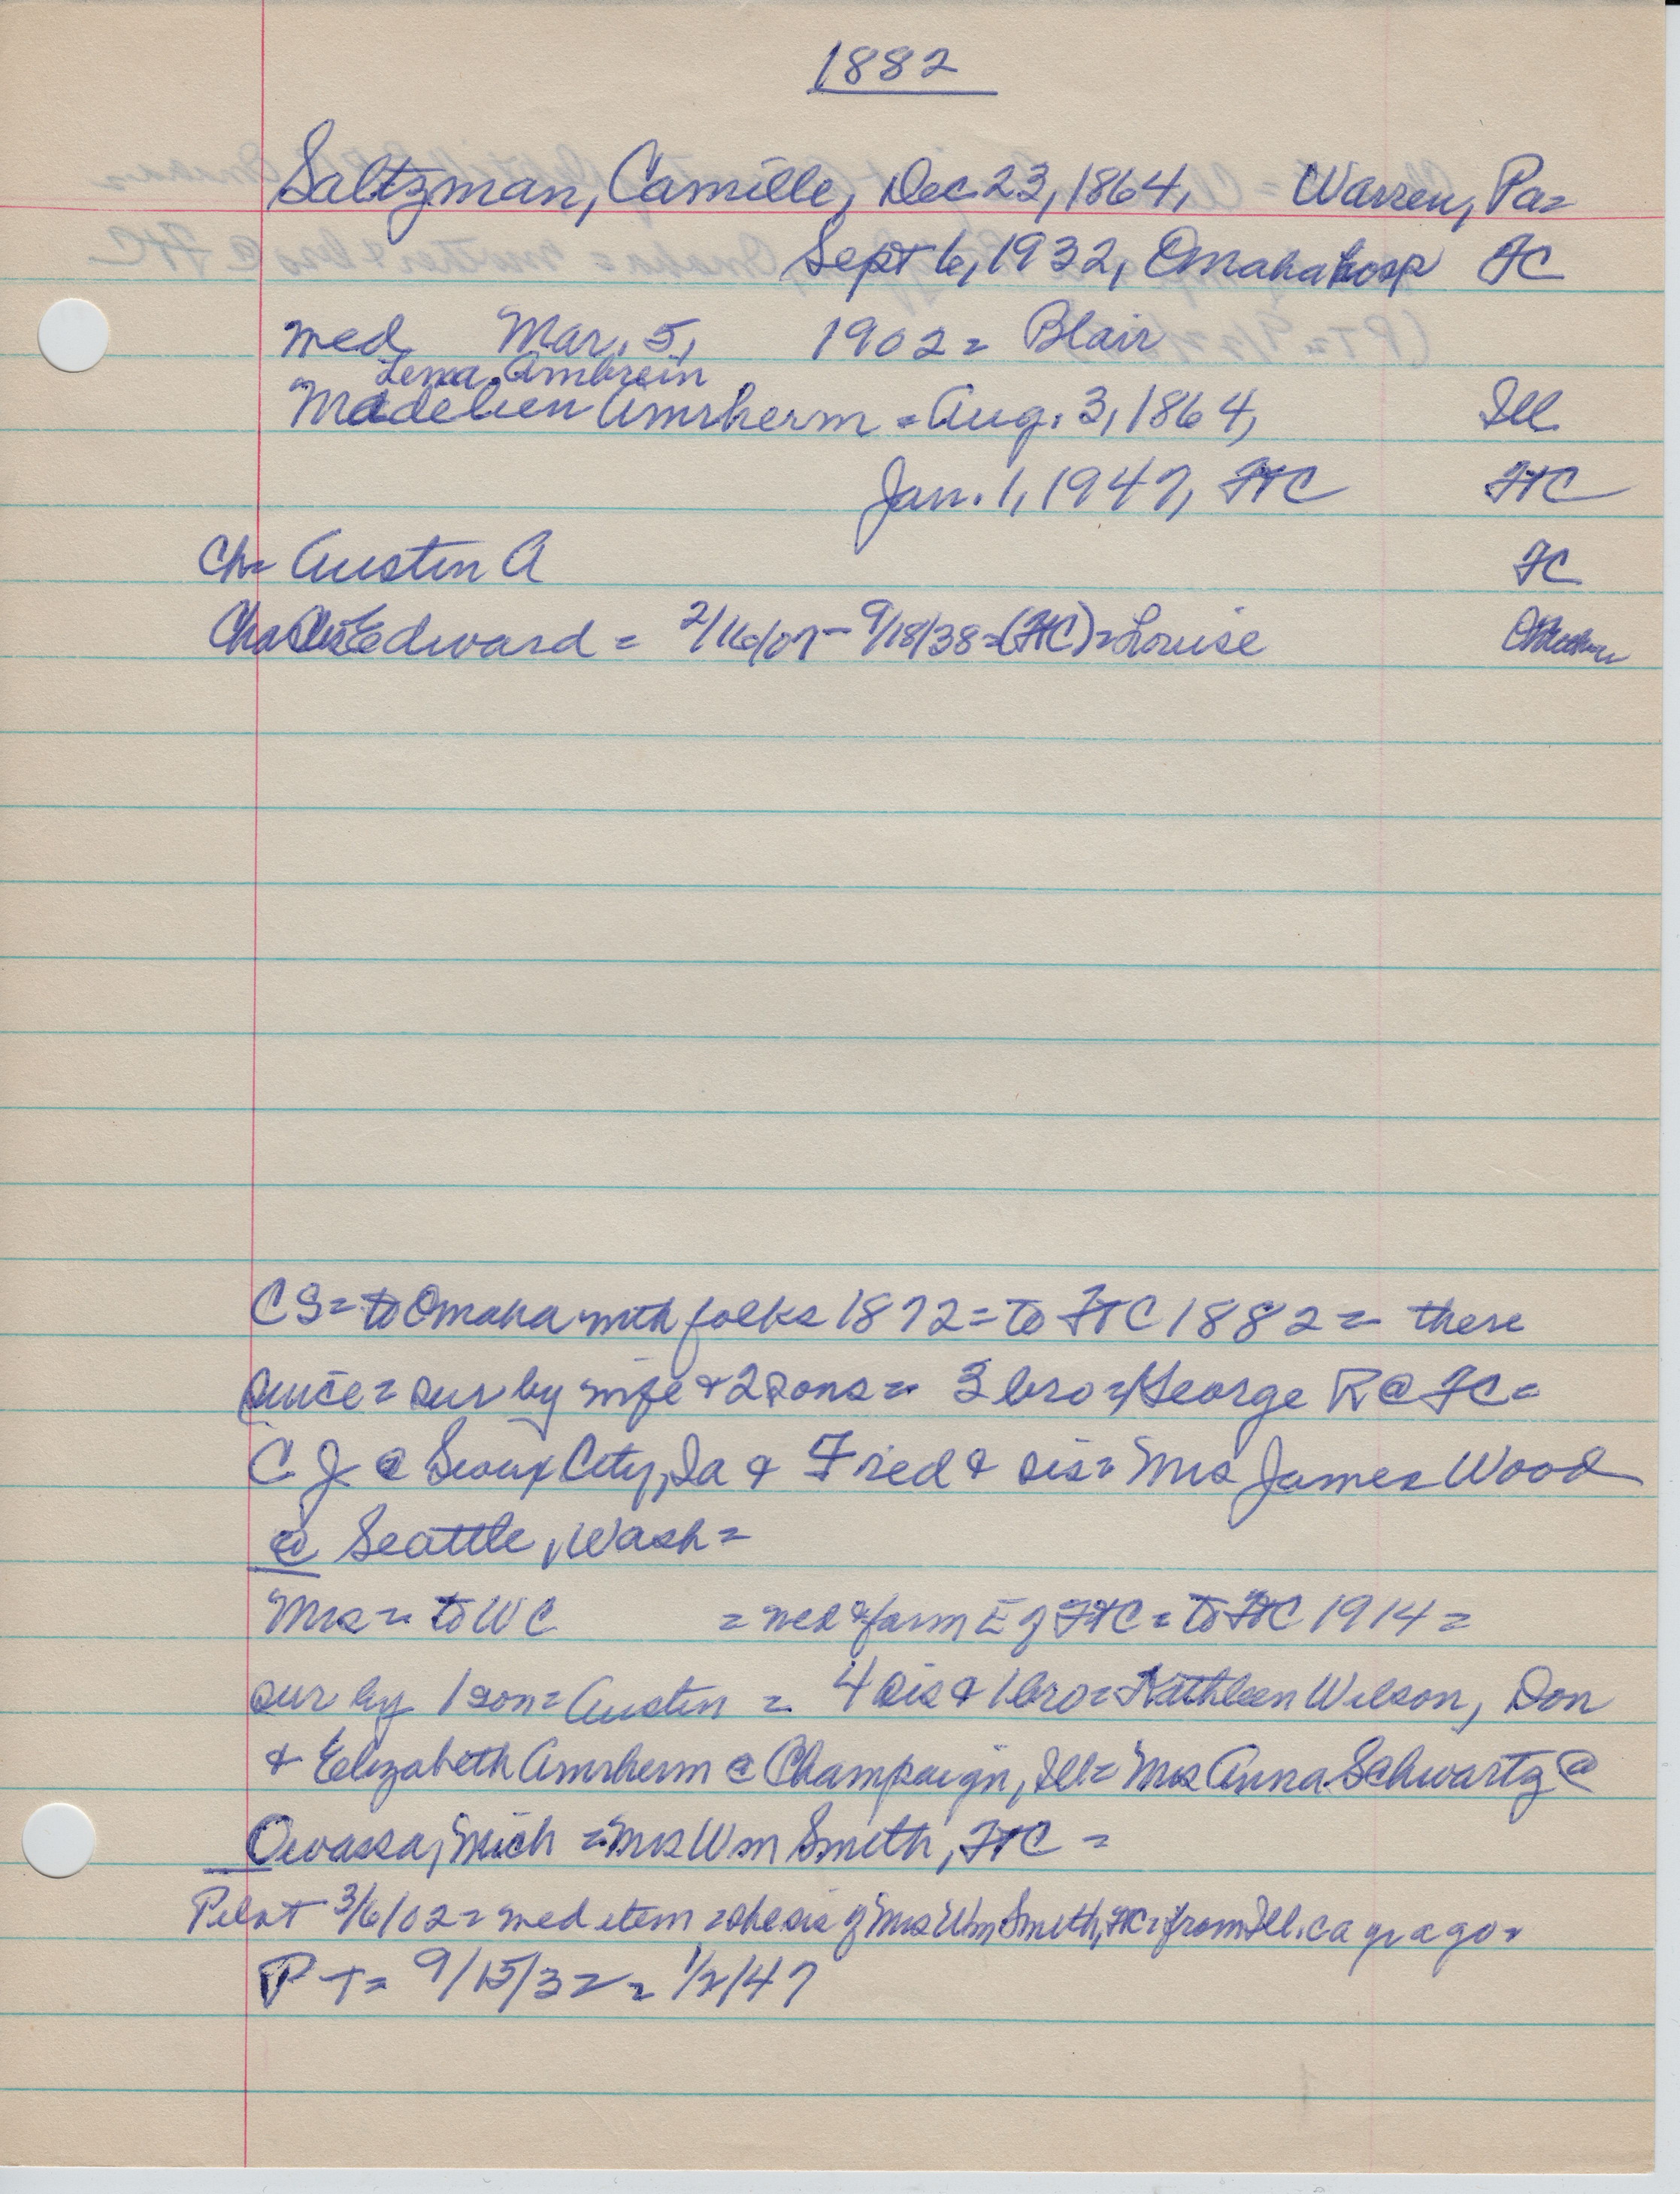 1882
Saltzman, Camille, Dec 23, 1864, Warren, Pa=
Sept 6, 1932, Omaha hosp FC
med Mar. 5, 1902 = Blair
Lena Ambrein
Madelien Amrherm = Aug. 3, 1864, Ill
Jan. 1, 1947, FtC FtC
Ch= Austin A FC
Edward = 2/16/07 - 9/18/38 = (FtC) = Louise
CS = to Omaha with folks 1872 = to FtC 1882 = there
since = sur by wife & 2 sons = 3 bro = George R @ FC =
C. J. @ Sioux City, Ia & Fred & sis = Mrs James Wood
@ Seattle, Wash =
Mrs = to WC = med & farm E of FtC = to FtC 1914 =
sur by 1 son = Austin = 4 sis & 1 bro = Kathleen Wilson, Don
& Elizabeth Amrherm @ Champaign, Ill = Mrs Anna Schwartz @
Owassa, Mich = Mrs Wm Smith, FtC =
Pilot 3/6/02 = med item = she sis of Mrs Wm Smith, FtC = from Ill. ca yr ago =
PT = 9/15/32 = 1/2/47